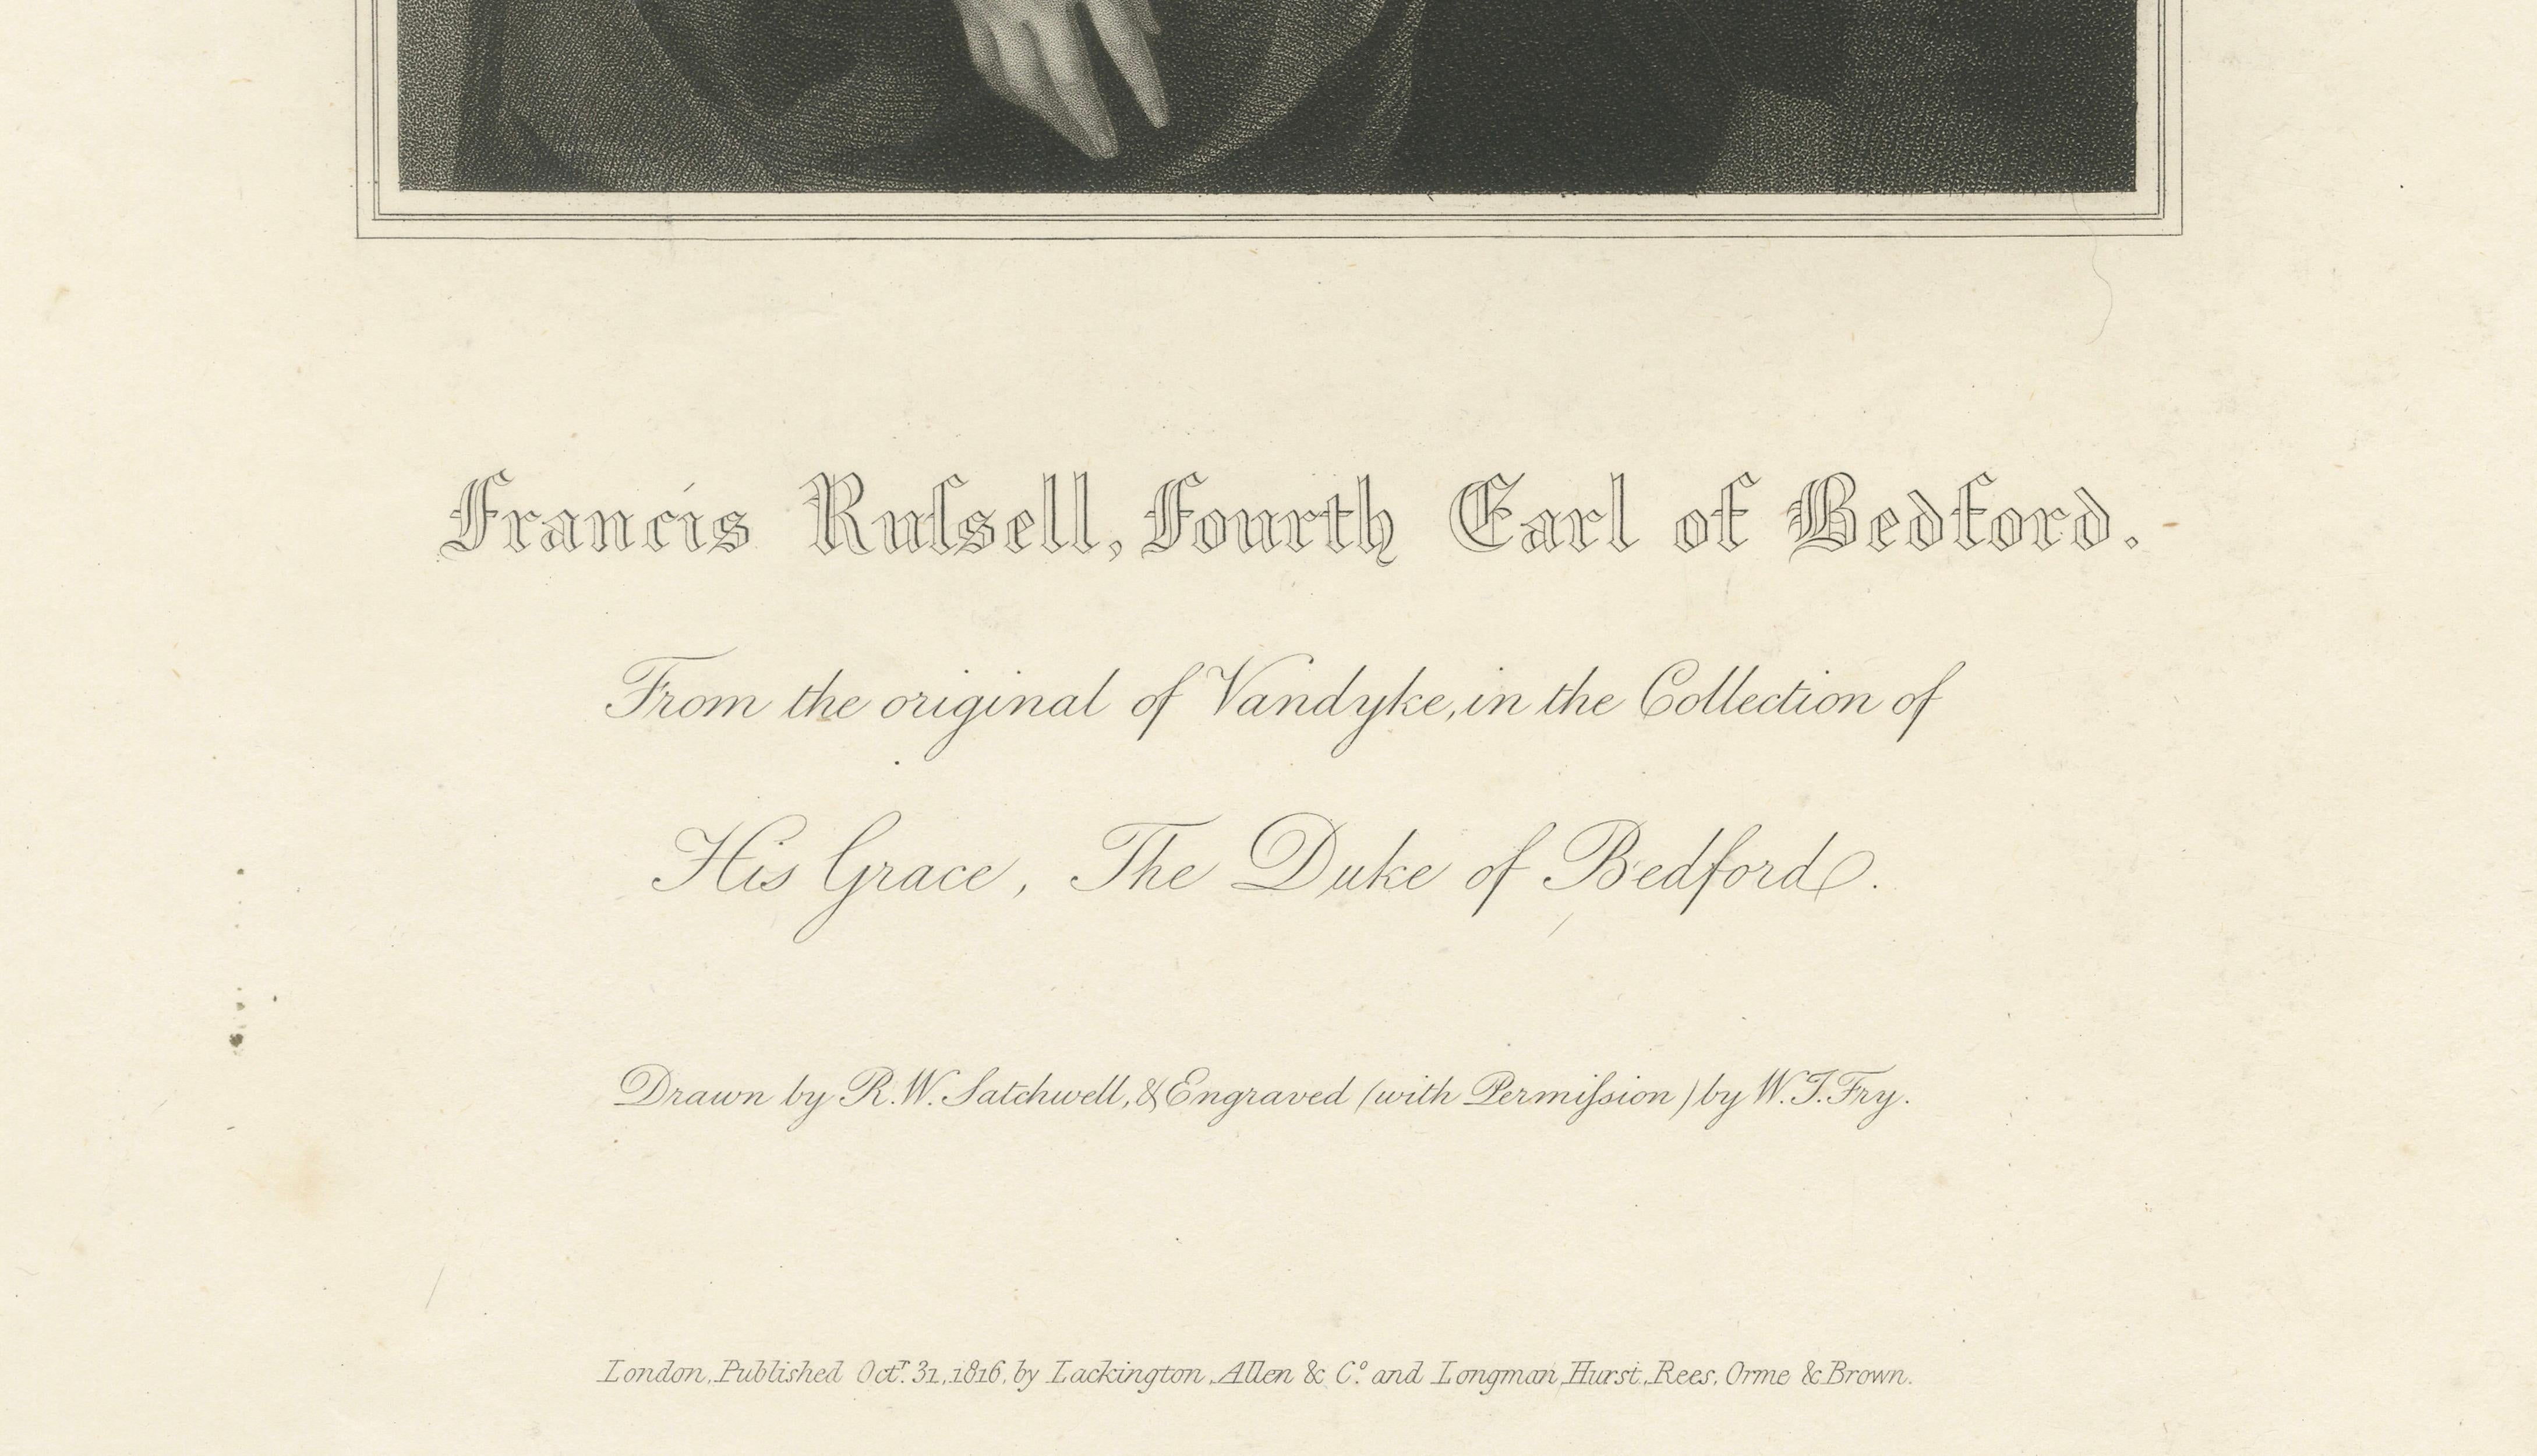 Francis Ruſsell, Fourth Earl of Bedford.
From the original of Vandyke, in the Collection of
His Grace, The Duke of Bedford.
Drawn by R. W. Satchwell, & Engraved (with Permiſsion) by W. T. Fry.
London, Published Octr. 31, 1816, by Lackington, Allen & Co. and Longman, Hurst, Rees, Orme & Brown.